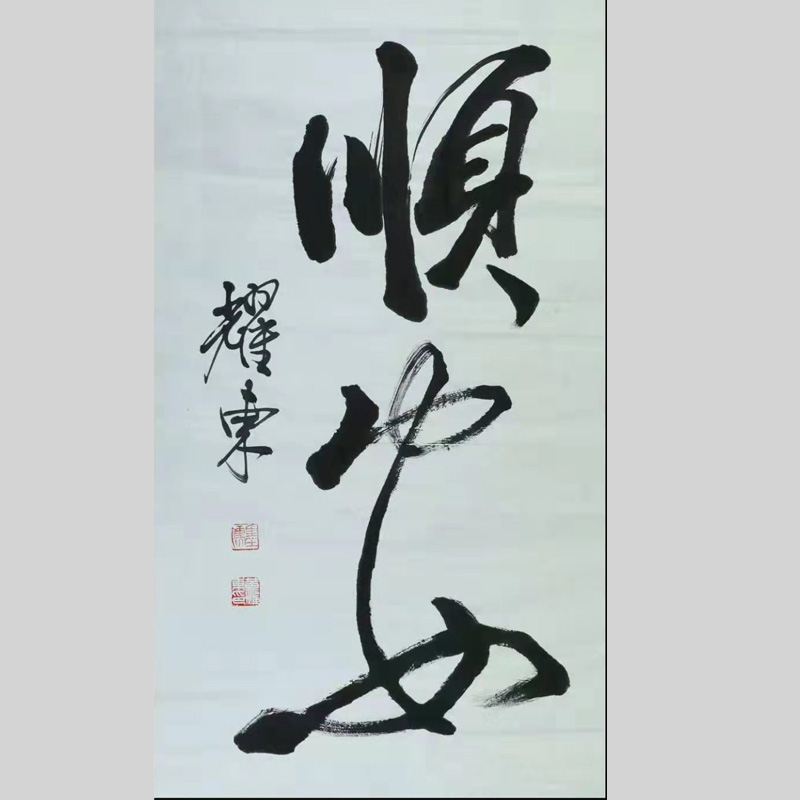 順安
耀東